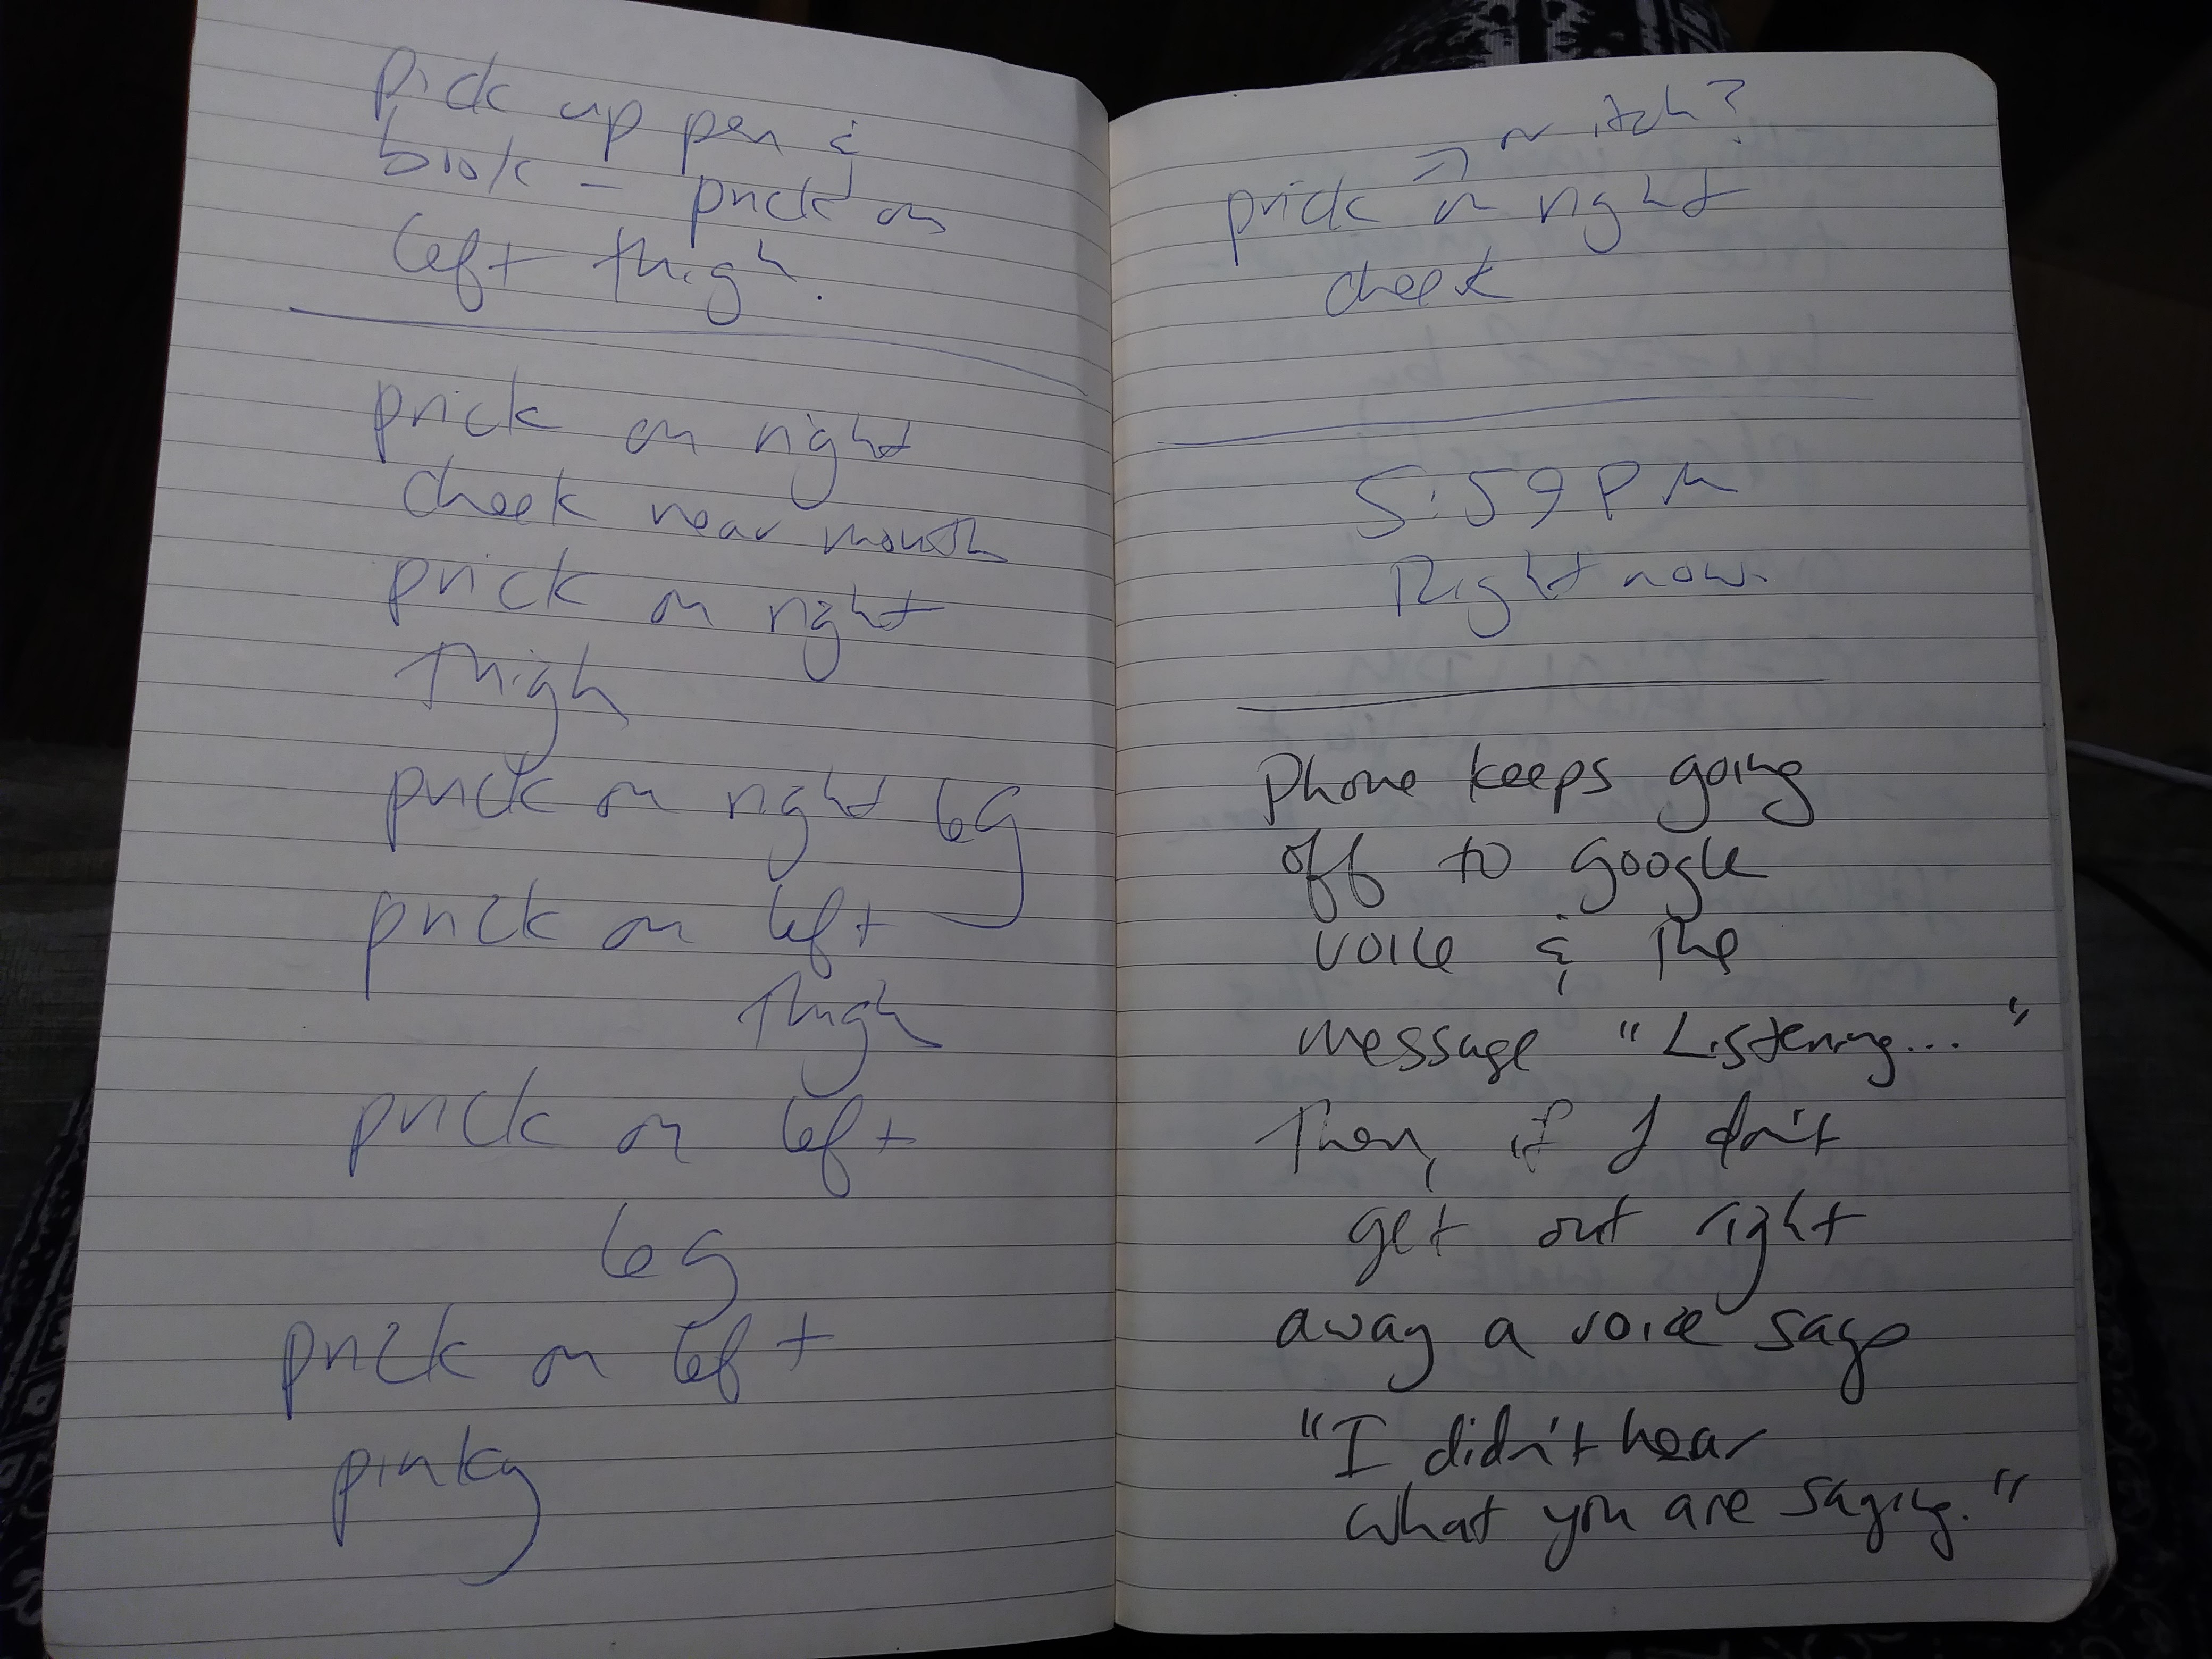 Pick up pen &
book - prick on
left thigh.
prick on right
cheek near mouth
prick on right
thigh
prick on right leg
prick on left
thigh
prick on left
leg
prick on left
pinky
or itch?
prick on right
cheek
5:59 PM
Right now.
Phone keeps going
off to google
voice & the
message "Listening..."
Then, if I don't
get out right
away a voice says
"I didn't hear
what you are saying."